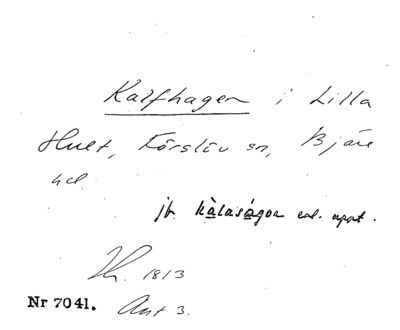 Kalfhagen i Lilla
Hult, Förslöv sn, Bjäre
hd.
jfr kàlasǻgon enl. uppt.
1813
Nr 7041. Akt 3.